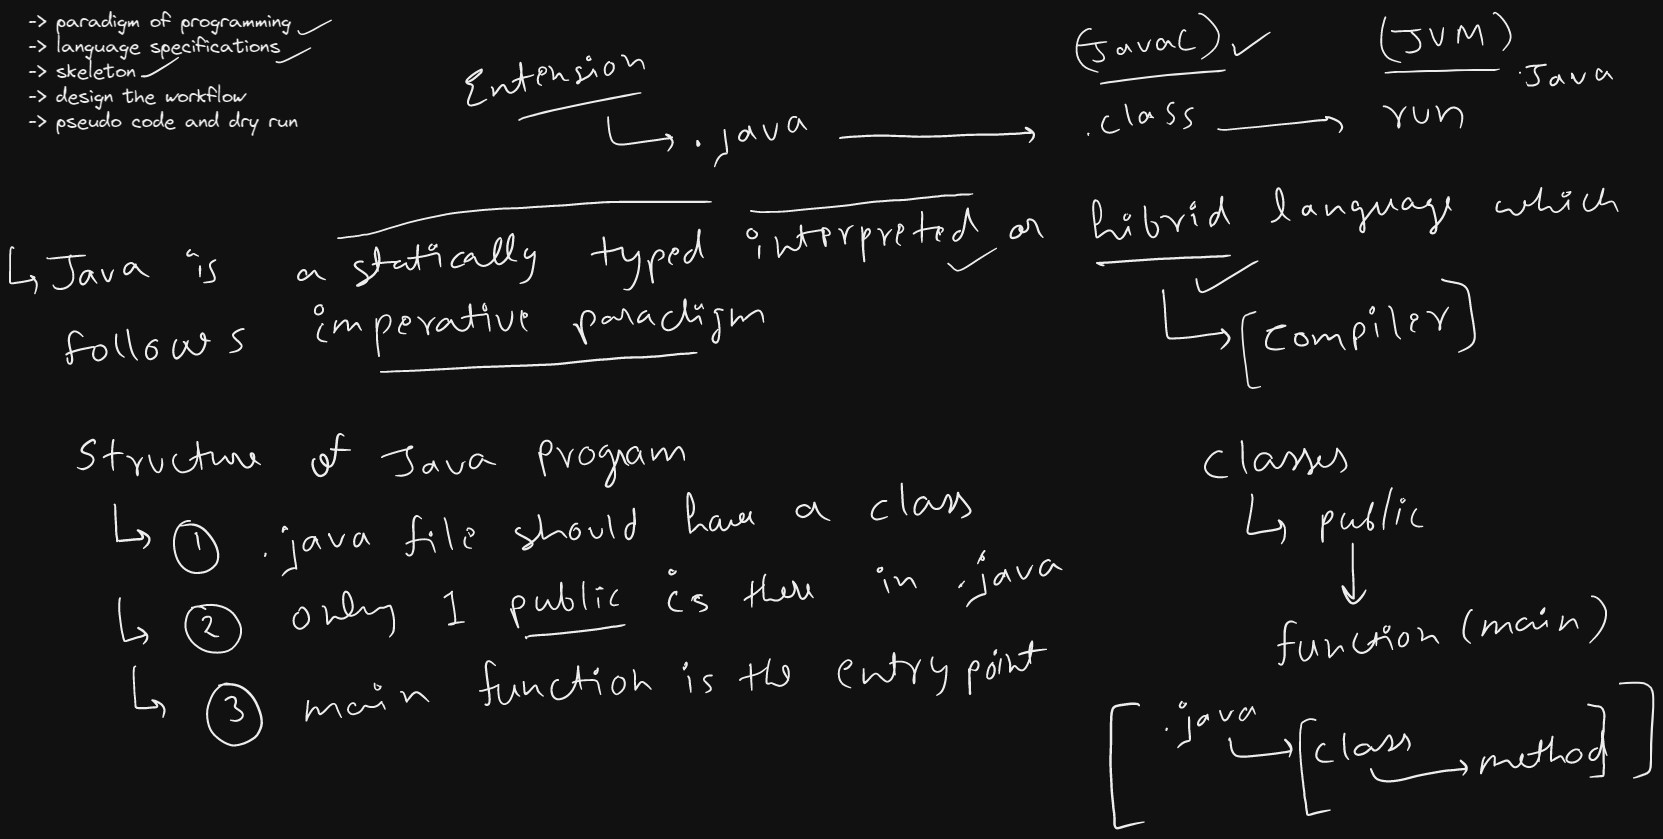 -> paradigm of programming
-> language specifications
-> skeleton
-> design the workflow
-> pseudo code and dry run
Extension
(Javac)
(JVM)
.Java
.java
.class
run
Java is a statically typed interpreted or hibrid language which
follows imperative paradigm
[Compiler]
Structure of Java Program
1 .java file should have a class
2 only 1 public is there in .java
3 main function is the entry point
Classes
public
function (main)
[.java [class method]]